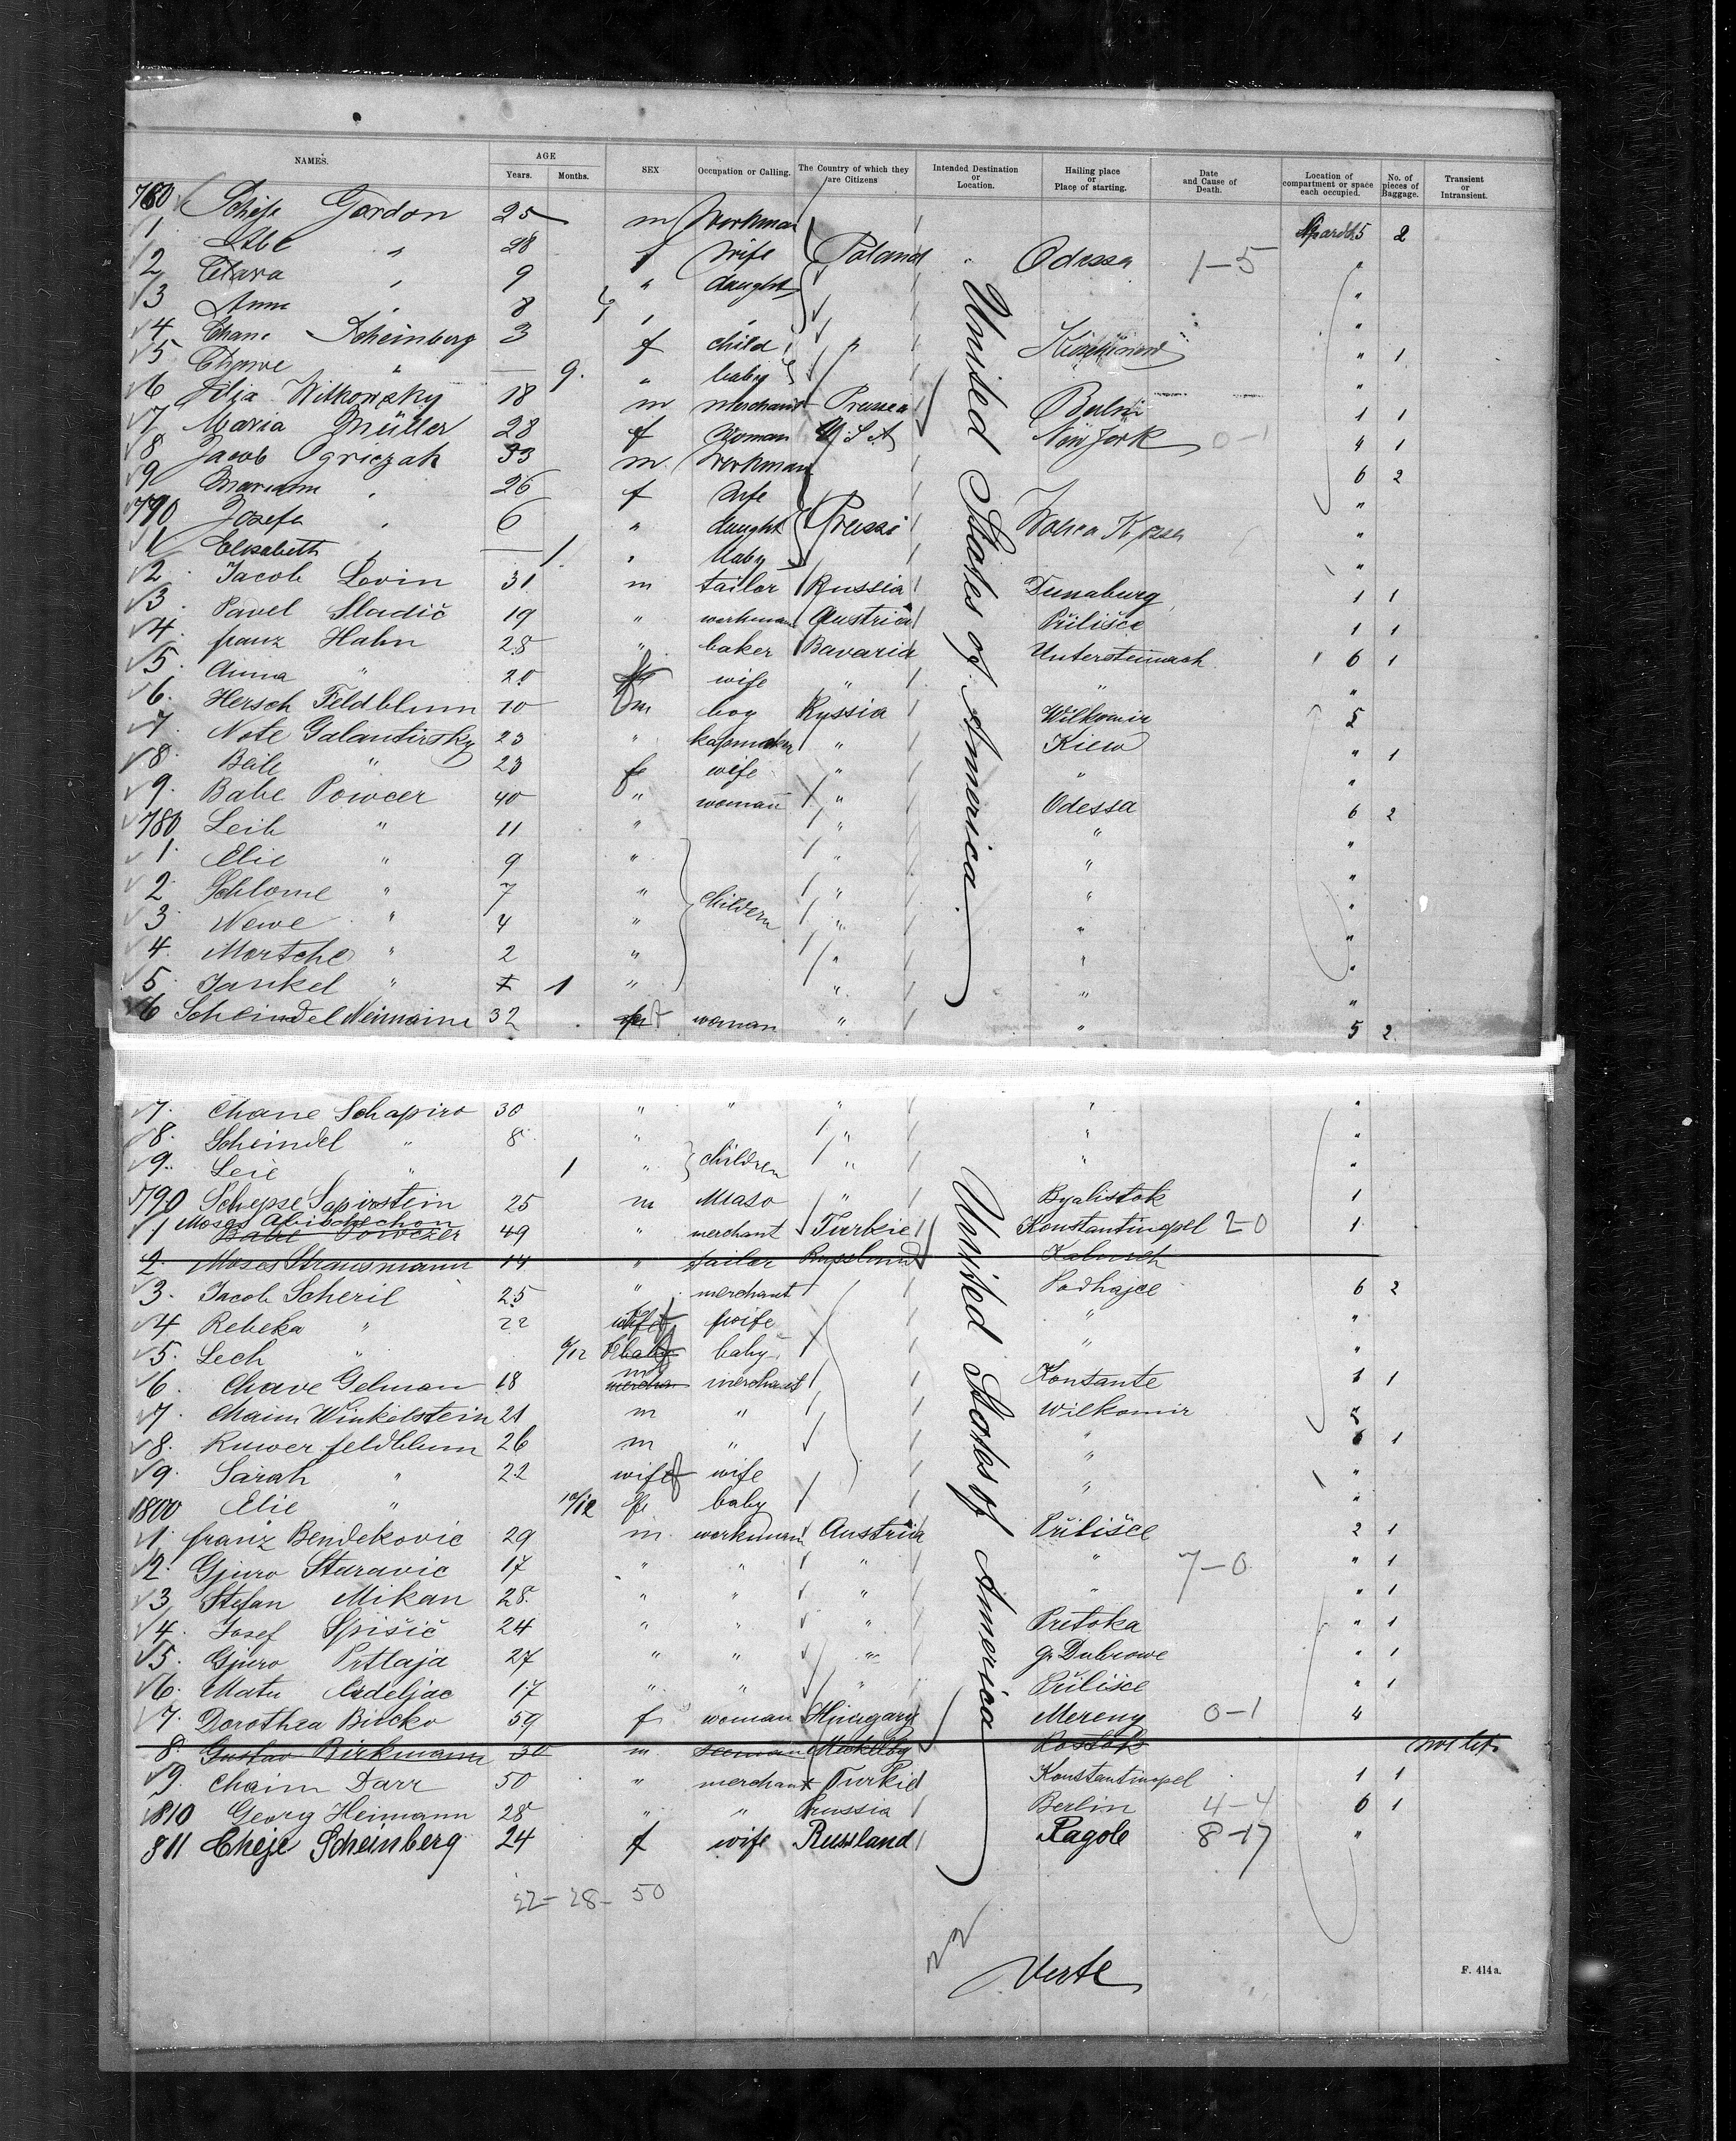 NAMES. AGE Years. Months. SEX Occupation or Calling. The Country of which they are Citizens Intended Destination or Location. Hailing place or Place of starting. Date and Cause of Death. Location of compartment or space each occupied. No. of pieces of Baggage. Transient or Intransient.
760 Gordon 25 m Workman 5 2
1 " 28 f wife Poland Odessa 1-5 "
2 Clara " 9 " daught "
3 Anna " 8 " "
4 Chane Scheinberg 3 f child " " 1
5 " — 9. " baby "
6 Witkowsky 18 m merchant Prussia Berlin 1 1
7 Maria Müller 28 f woman U.S.A New York 0-1 4 1
8 Jacob Ogriczak 33 m Workman 6 2
9 Mariann " 26 f wife "
790 Josefa " 6 " daught Prussi "
11 Elisabeth " — 1. " baby "
2 Jacob Levin 31 m tailor Russia Dunaburg 1 1
3 Pavel Sladič 19 " workman Austria Prilišce 1 1
4 franz Hahn 28 " baker Bavaria Untersteinach 6 1
5 Anna " 20 wife " " "
6. Hersch Feldblum 10 m boy Russia Wilkomir 5
7. Note Galantirsky 23 " " Kiew " 1
8. Beile " 23 f wife " " "
9. Babe Powcer 40 " woman " Odessa 6 2
780 Leib " 11 " " " "
1. Elie " 9 " " " "
2. Schlome " 7 " childern " " "
3. Newe " 4 " " " "
4. Mortche " 2 " " " "
5. Jankel " 1 " " " "
6 Scheindel Neimann 32 woman " " 5 2.
7. Chane Schapiro 30 " " " " "
8. Scheindel " 8 " " " "
9. Leie " 1 " children " " "
790 Schepse Sapirstein 25 m " Byalistok 1
1 Moses
Babe Powczer 49 " merchant Turkie Konstantinopel 2-0 1
2. Moses Strausmann 14 " tailor Russland
3. Jacob Scheril 25 " merchant Podhajce 6 2
4 Rebeka " 22 wife f wife " "
5. Lech " 6/12 baby baby " "
6. Chave Gelman 18 m merchant Konstante 1 1
7. Chaim Winkelstein 21 m " Wilkomir
8. Ruwer feldblum 26 m " " 6 1
9. Sarah " 22 wife f wife " "
1800 Elie " 10/12 baby "
1. franz Bendekovic 29 m workman Austria Prilišce 2 1
2. Gjuro Staravic 17 " " " " 7-0 " 1
3 Stefan Mikan 28. " " " " " 1
4. Josef Spišič 24 " " " Pretoka " 1
5. Gjuro Prtlaja 27 " " " Gr Dubrowe " 1
6. Matu Cedeljac 17 " " " Prilišce " 1
7. Dorothea Bincko 59 f woman Hungary Mereny 0-1 4
8. Gustav Birkmann 30 m. seeman Rostok
9. Chaim Darr 50 " merchant Turkie Konstantinopel 1 1
810 Georg Heimann 28 " " Prussia Berlin 4-4 6 1
811 Cheje Scheinberg 24 f wife Russland Ragole 8-17 "
United States of America
United States of America
22-28-50
Verte
F. 414a.